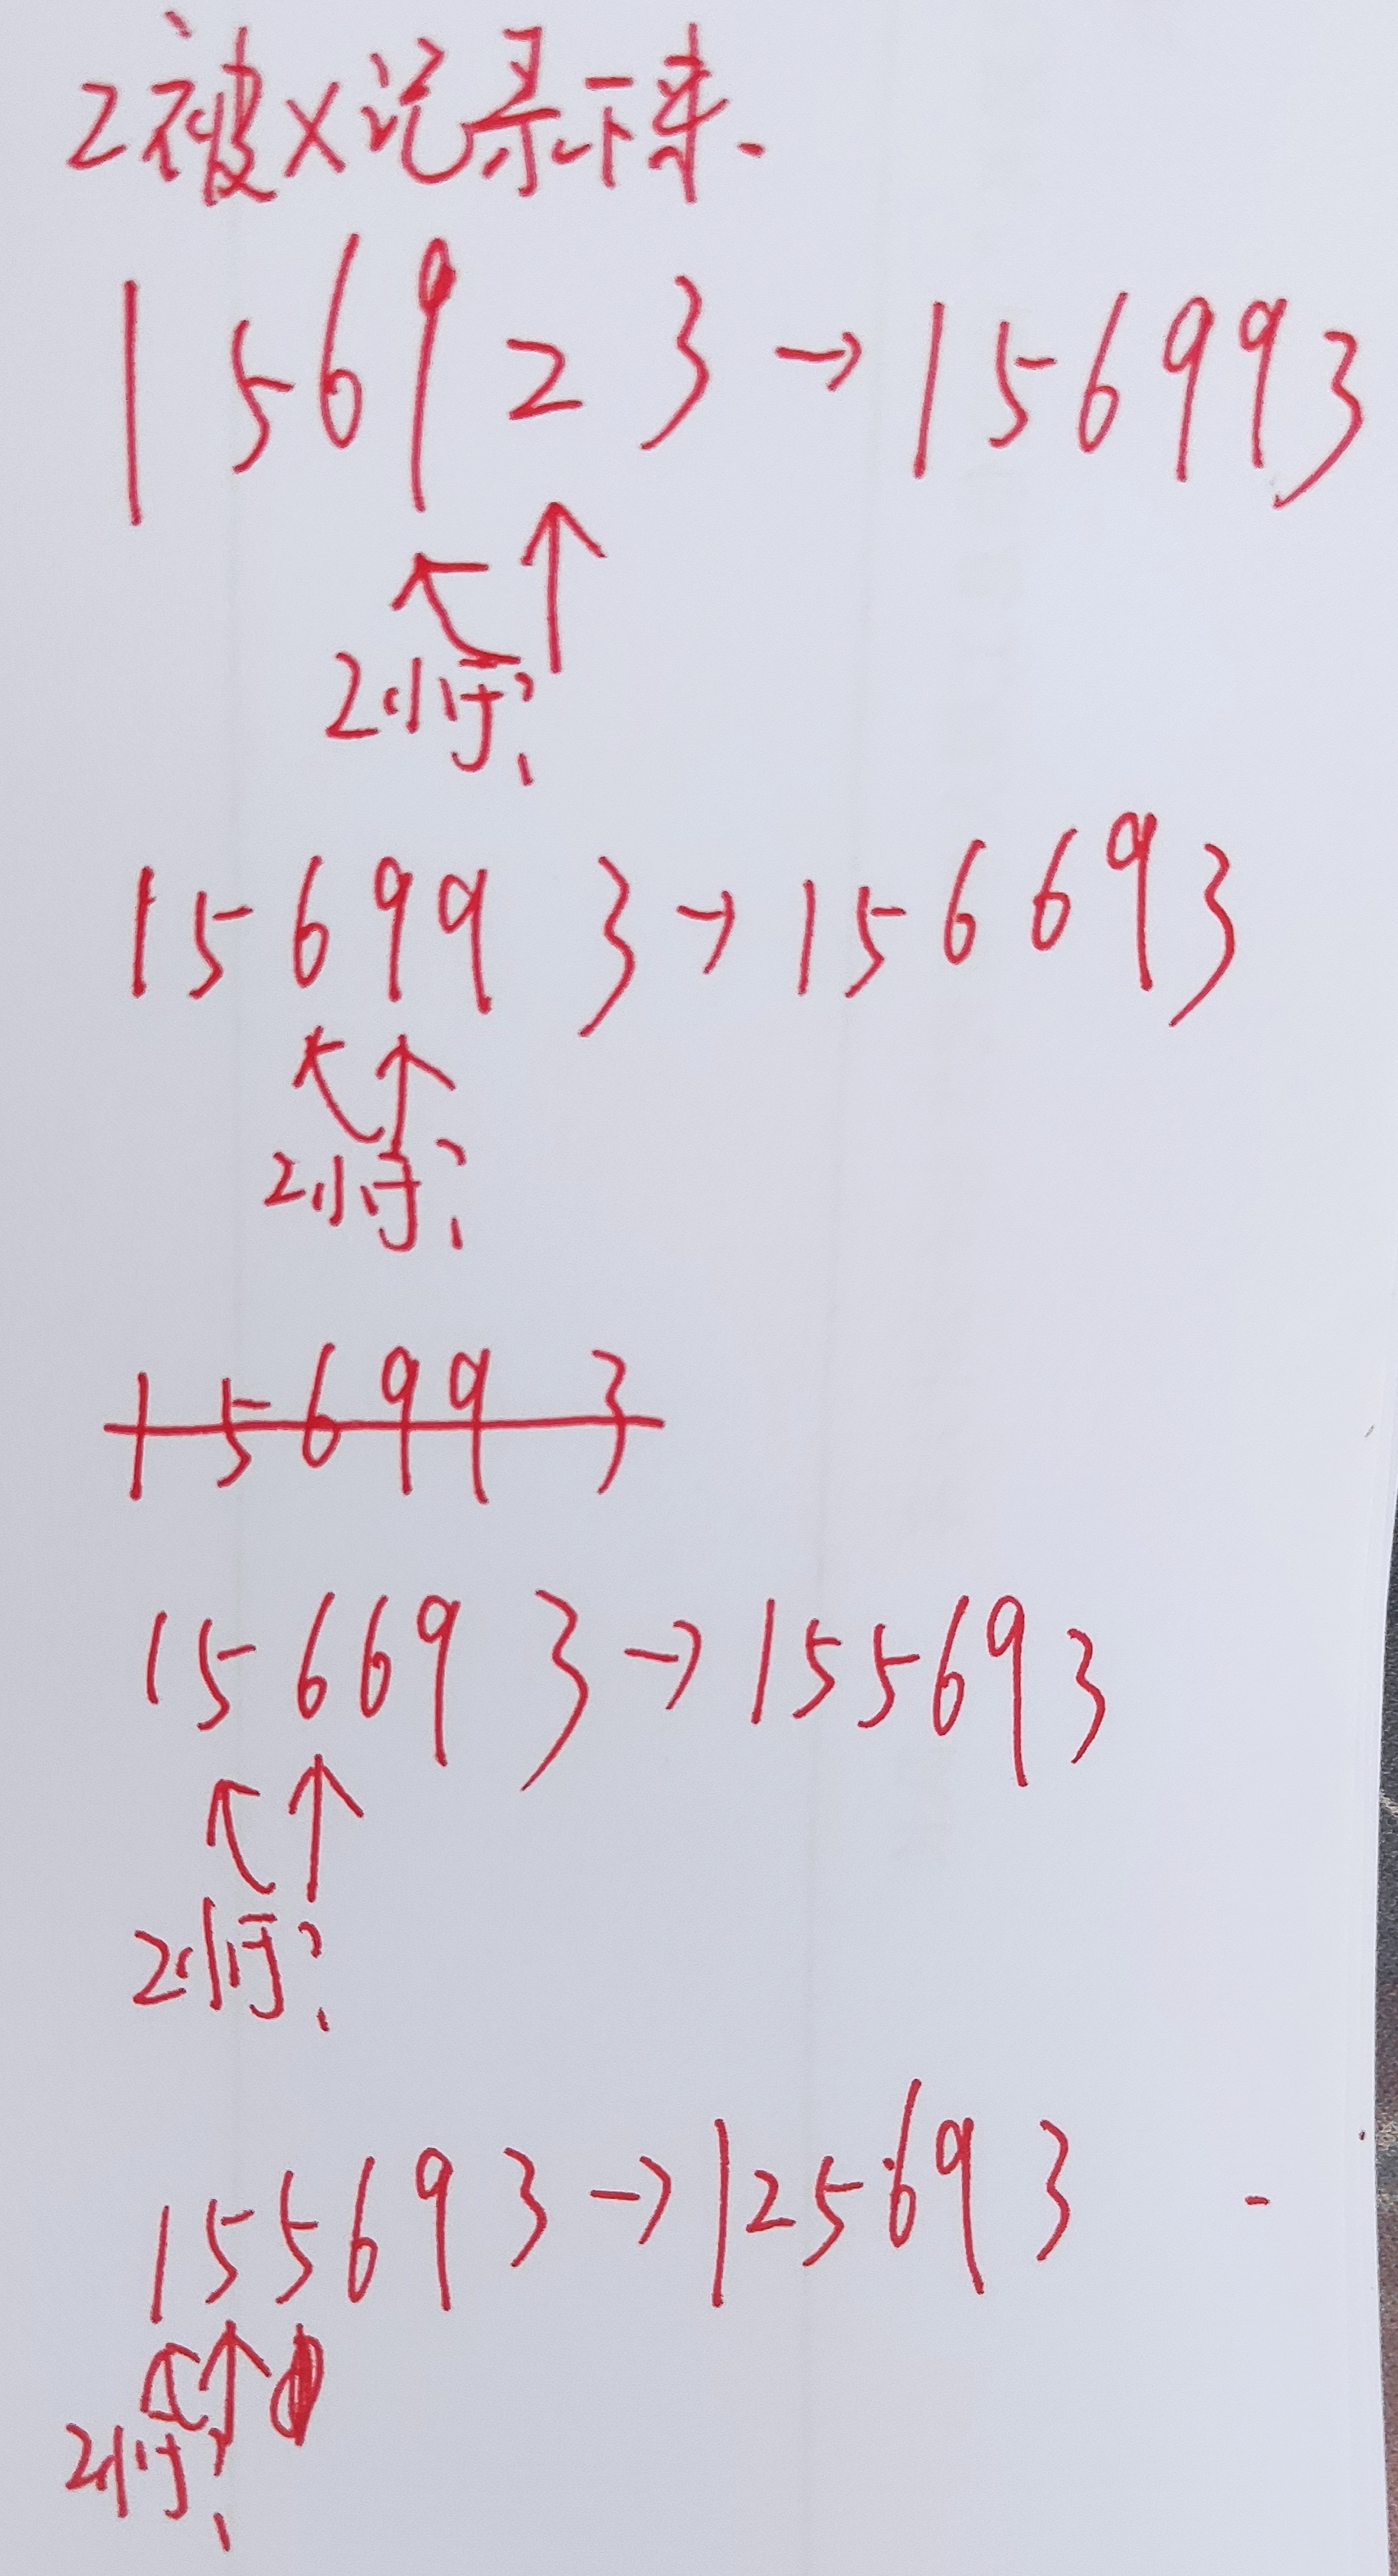 2被X记录下来.
1 5 6 9 2 3 → 1 5 6 9 9 3
2小于?
1 5 6 9 9 3 → 1 5 6 6 9 3
2小于?
1 5 6 9 9 3
1 5 6 6 9 3 → 1 5 5 6 9 3
2小于?
1 5 5 6 9 3 → 1 2 5 6 9 3
2小于?